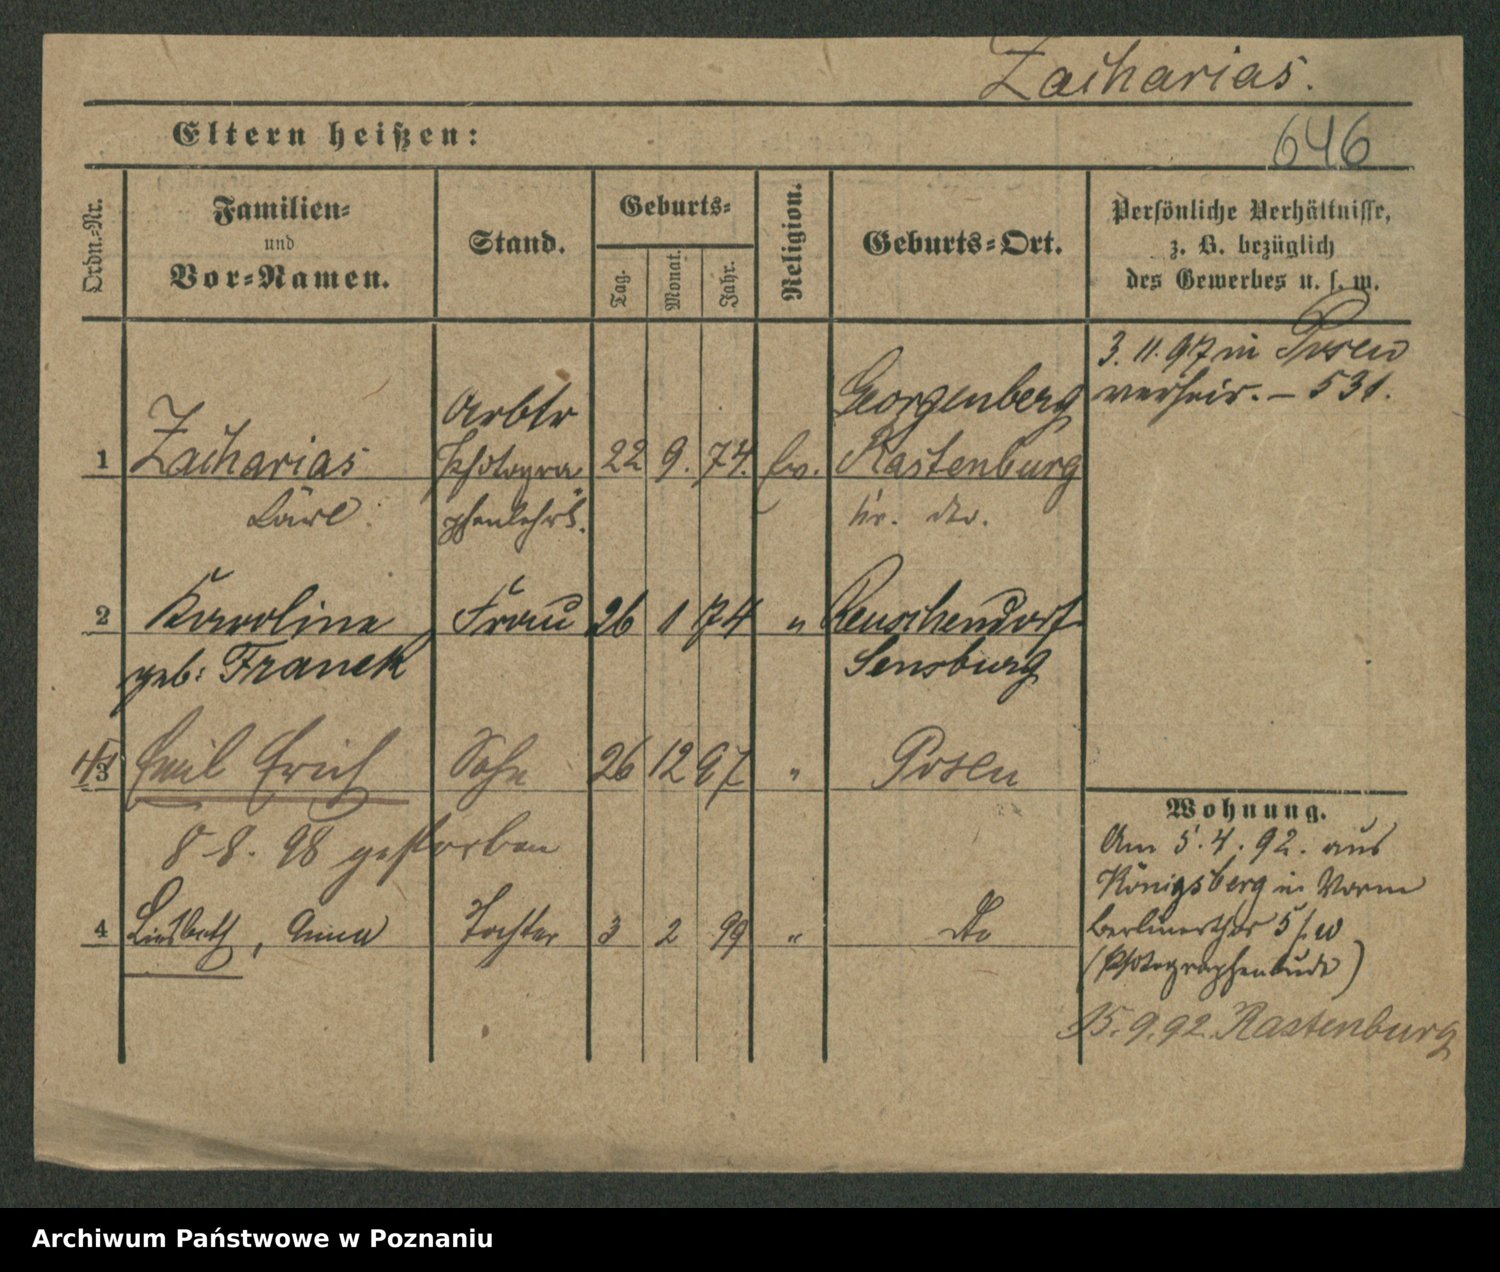 Zacharias.
Eltern heißen:
646
Ordn.-Nr.
Familien-
und
Vor-Namen.
Stand.
Geburts-
Tag.
Monat.
Jahr.
Religion.
Geburts-Ort.
Persönliche Verhältnisse,
z. B. bezüglich
des Gewerbes u. s. w.
3. 11. 97 in Posen
verheir. – 531.
Arbtr
Georgenberg
1 Zacharias Photogra- 22 9. 74. ev. Rastenburg
Carl. phenlehrl.
2 Karoline Frau 26 1 74 " Reuschendorf
geb: Franek Sensburg
3 Emil Erich Sohn 26 12 97 " Posen
8. 8. 98 gestorben
4 Liesbeth, Anna Tochter 3 2 99 " do
Wohnung.
Am 5. 4. 92. aus
Königsberg in
Berlinerthor 5
(Photographenbude)
15. 9. 92. Rastenburg
Archiwum Państwowe w Poznaniu